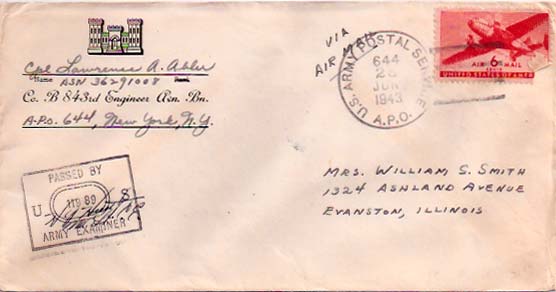 Cpl Lawrence A. Adler
Name ASN 36291008 Rank
Co. B 843rd Engineer Avn. Bn.
A.P.O. 644, New York, N.Y.
VIA
AIR MAIL
U.S. ARMY POSTAL SERVICE
644
28
JUN
1943
A.P.O.
AIR 6 MAIL
CENTS
UNITED STATES OF AMERICA
PASSED BY
U S
ARMY EXAMINER
MRS. WILLIAM S. SMITH
1324 ASHLAND AVENUE
EVANSTON, ILLINOIS